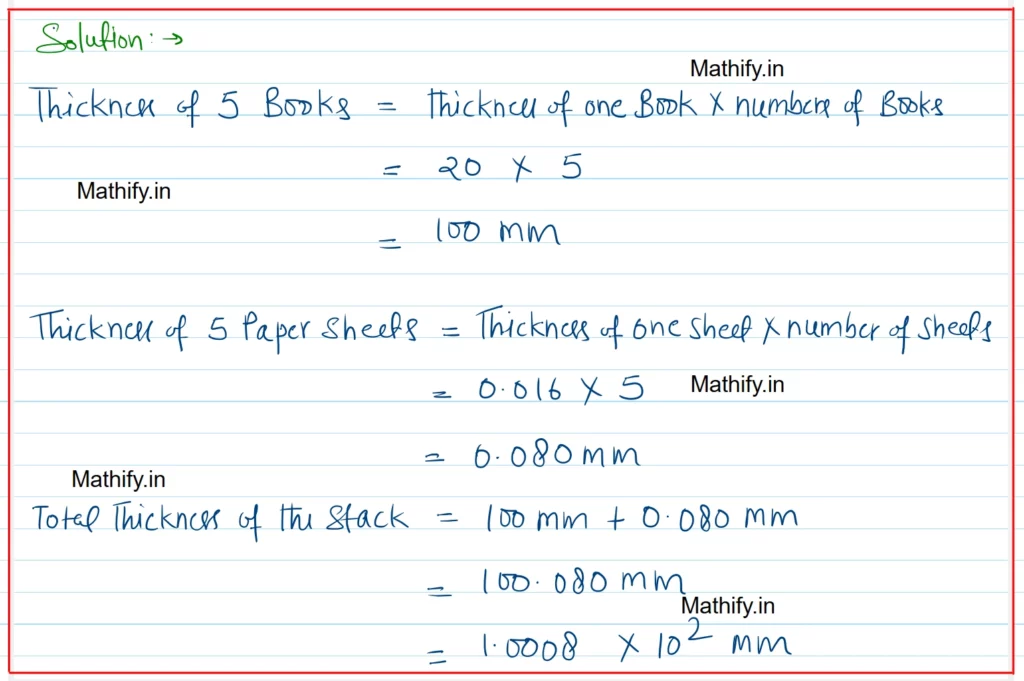 Solution: →
Mathify.in
Thickness of 5 Books = thickness of one Book × numbers of Books
= 20 × 5
Mathify.in
= 100 mm
Thickness of 5 Paper Sheets = Thickness of one sheet × number of sheets
= 0.016 × 5 Mathify.in
= 0.080 mm
Mathify.in
Total Thickness of the Stack = 100 mm + 0.080 mm
= 100.080 mm
Mathify.in
= 1.0008 × 10² mm